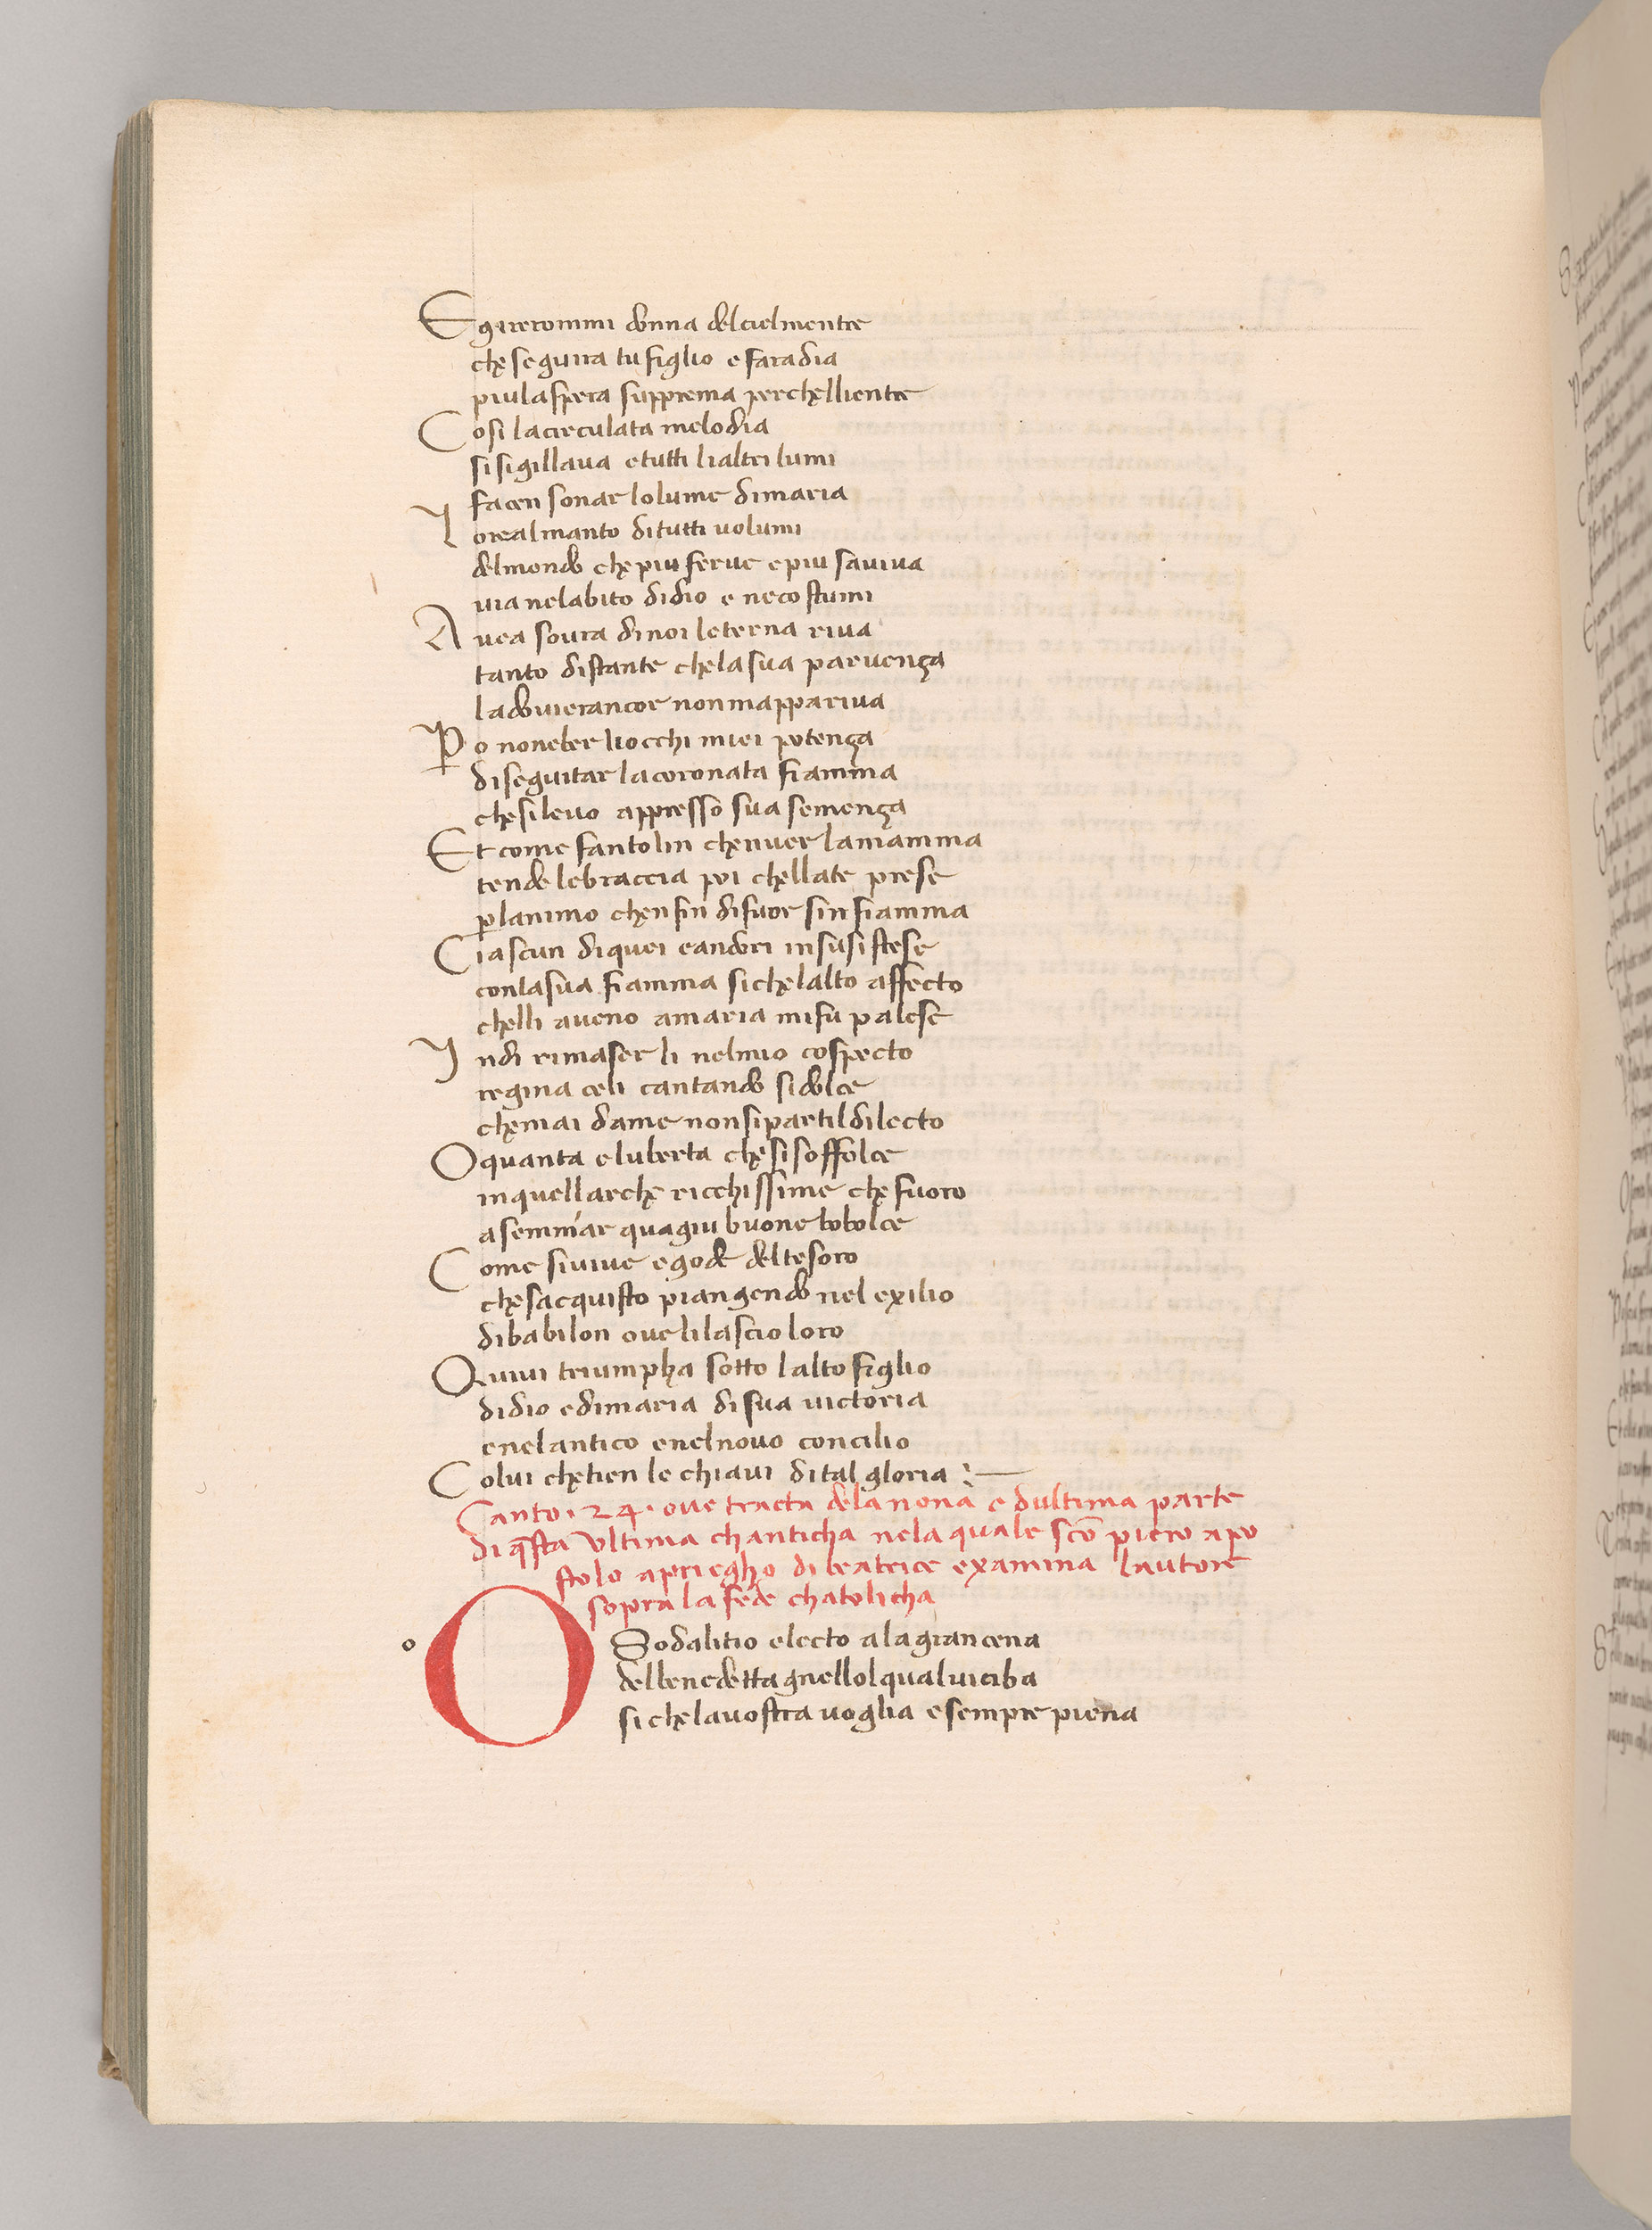 E girerommi donna delcielmentre
che seguira tu figlio e fara dia
piu la spera supprema perchelli entre
C osi la circulata melodia
si sigillava e tutti li altri lumi
facen sonar lo lume di maria
L o real manto di tutti uolumi
del mondo che piu ferue e piu saviua
uia nelabito didio e ne costumi
A vea soura di noi leterna riua
tanto distante che la sua paruença
la dovierancor non mappariua
P o non eber li occhi miei potença
di seguitar la coronata fiamma
che si leuo appresso sua semença
E t come fantolin chenuer la mamma
tende le braccia poi chellate prese
p lanimo chenfin di fuor sinfiamma
C iascun di quei candori in su si stese
con la sua fiamma si che lalto affecto
chelli aveno a maria mi fu palese
I ndi rimaser li nel mio cospecto
regina celi cantando si dolce
che mai da me non si partil dilecto
O quanta e luberta che si soffolce
in quellarche ricchissime che fuoro
a seminar qua giu buone bobolce
C ome si uiue e gode del tesoro
che sacquisto piangendo nel exilio
di babilon oue li lascio loro
Q uiui triumpha sotto lalto figlio
di dio e di maria di sua uictoria
e nel antico e nel nouo concilio
C olui che tien le chiaui di tal gloria :—
Canto · 24 · ove tracta dela nona e dultima parte
di qsta ultima chanticha nela quale sco piero apo
stolo a priegho di beatrice examina lautore
sopra la fede chatolicha
o O Sodalitio electo a la gran cena
del benedetta gnello lqual ui ciba
si che la uostra uoglia e sempre piena